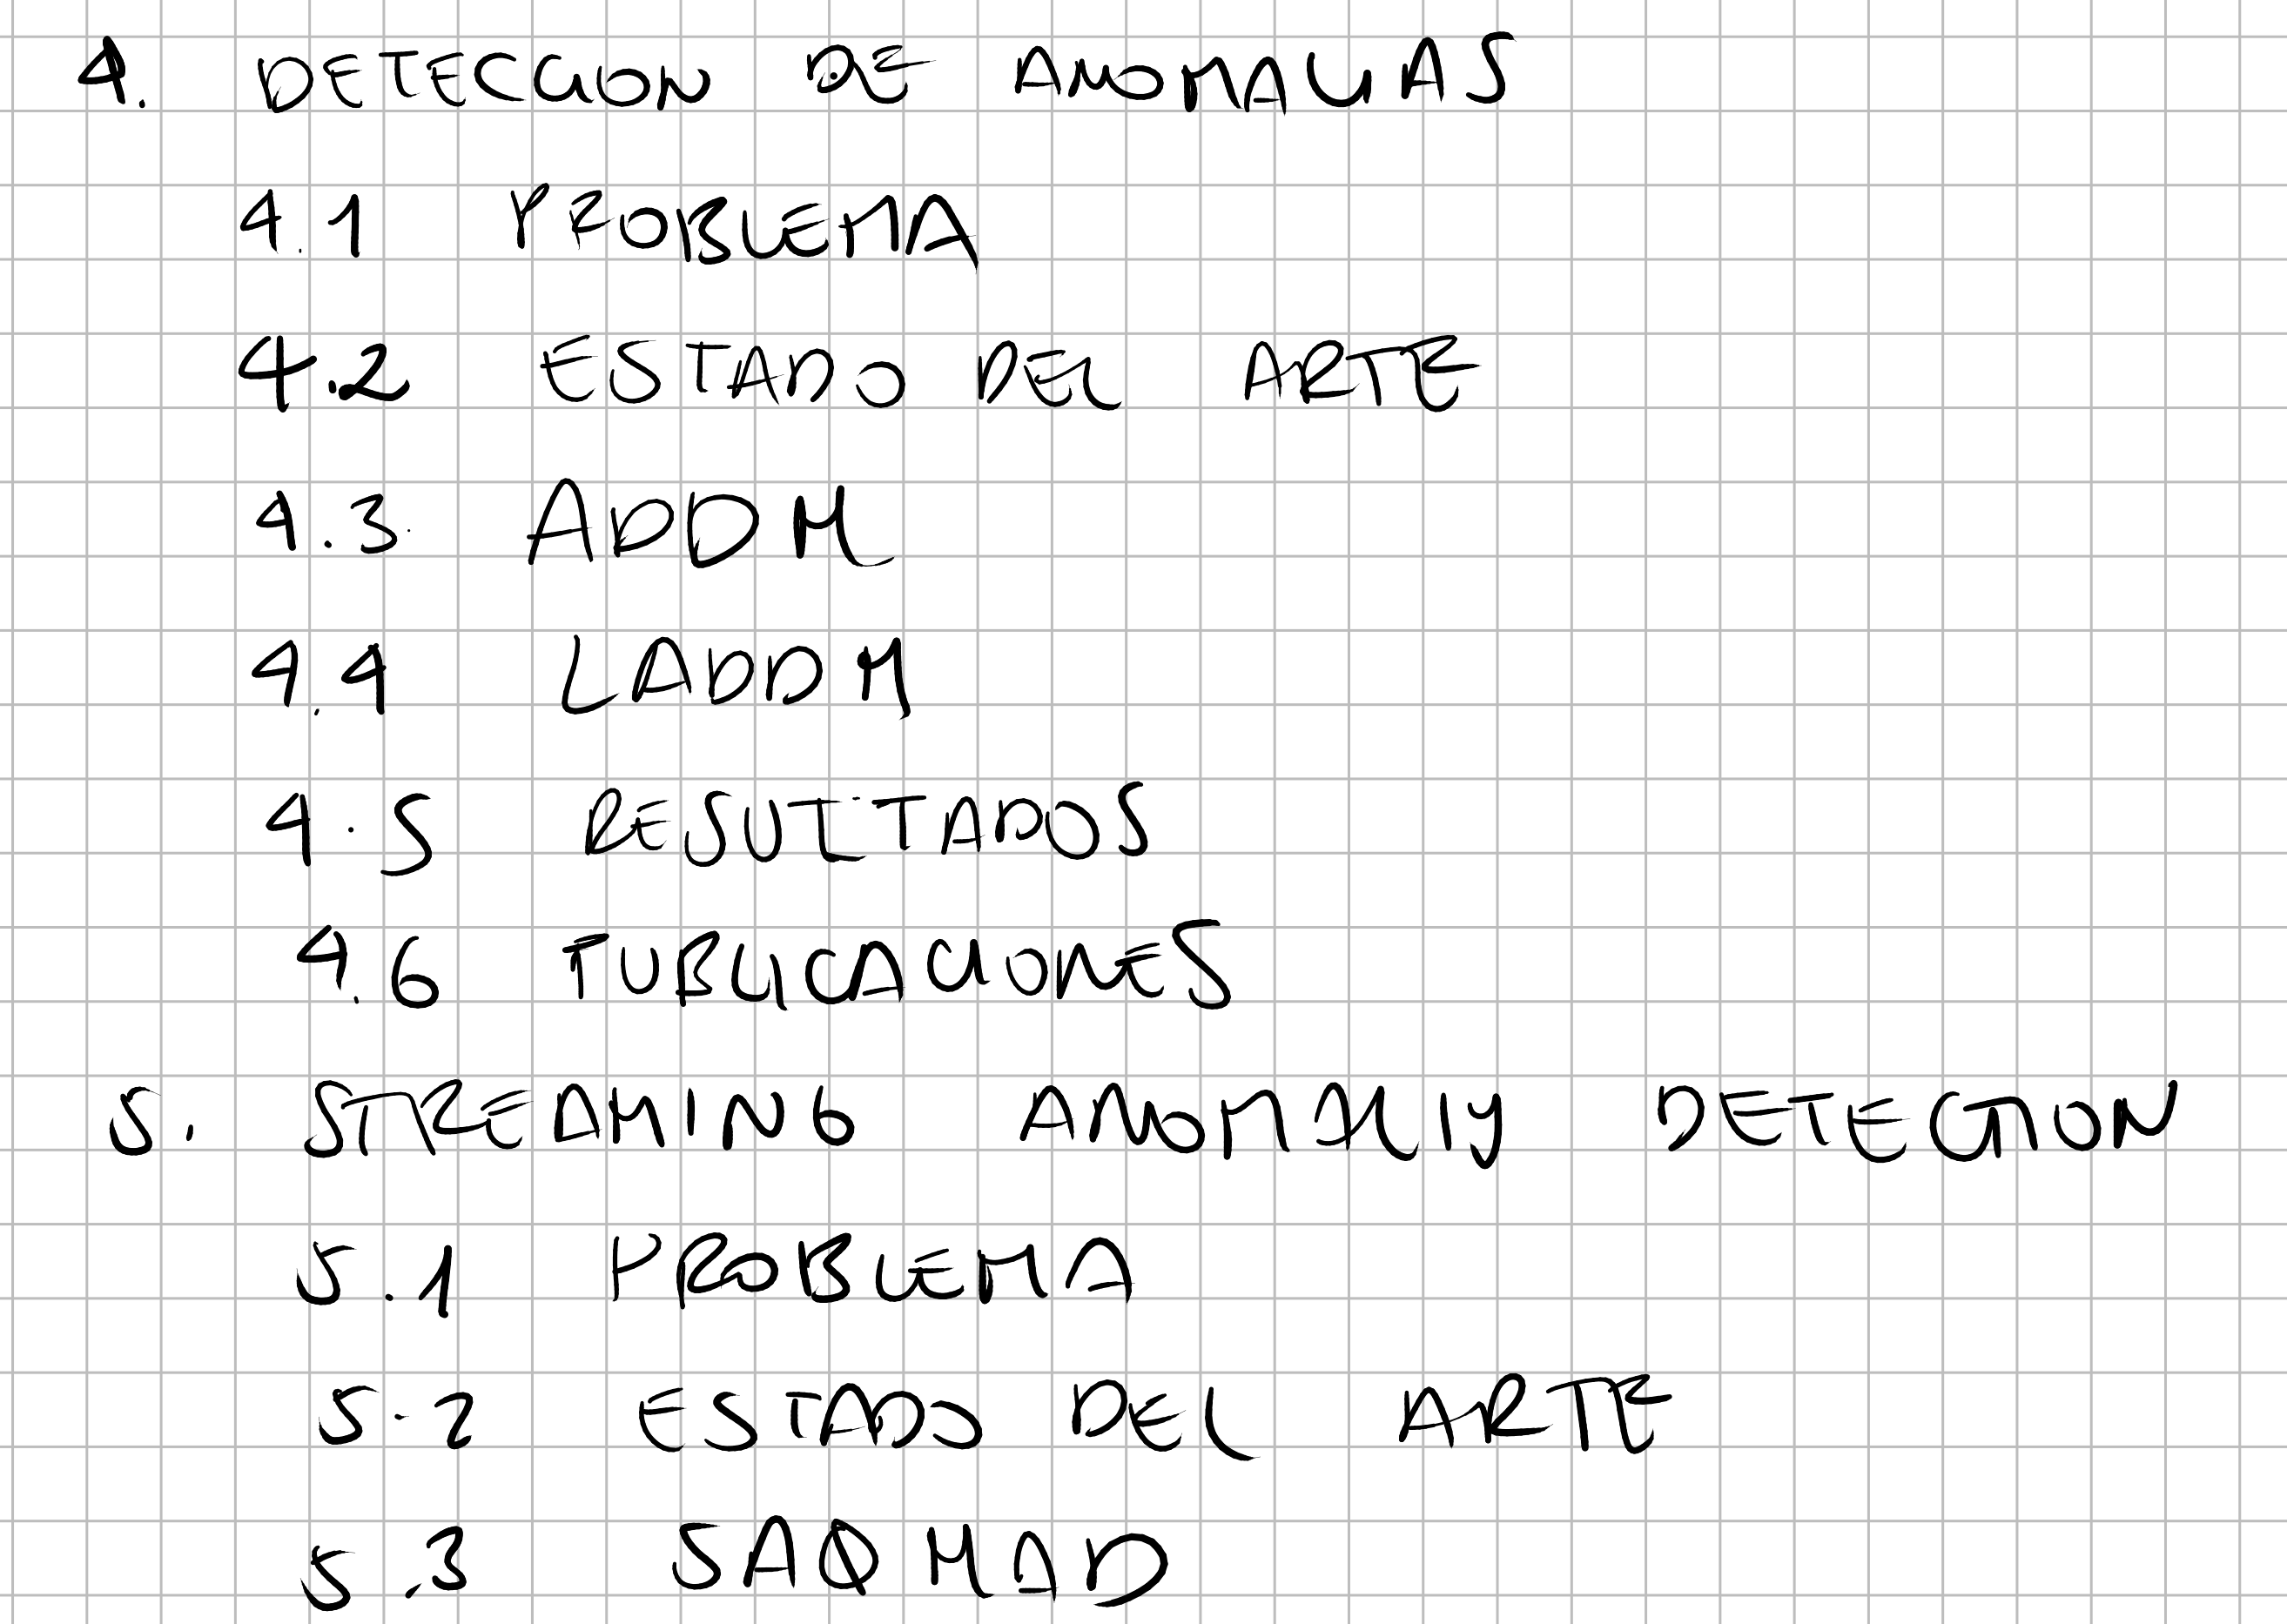 4. DETECCION DE ANOMALIAS
4.1 PROBLEMA
4.2 ESTADO DEL ARTE
4.3 ADDM
4.4 LADDM
4.5 RESULTADOS
4.6 PUBLICACIONES
5. STREAMING ANOMALIY DETECTION
5.1 PROBLEMA
5.2 ESTADO DEL ARTE
5.3 SAQMAD